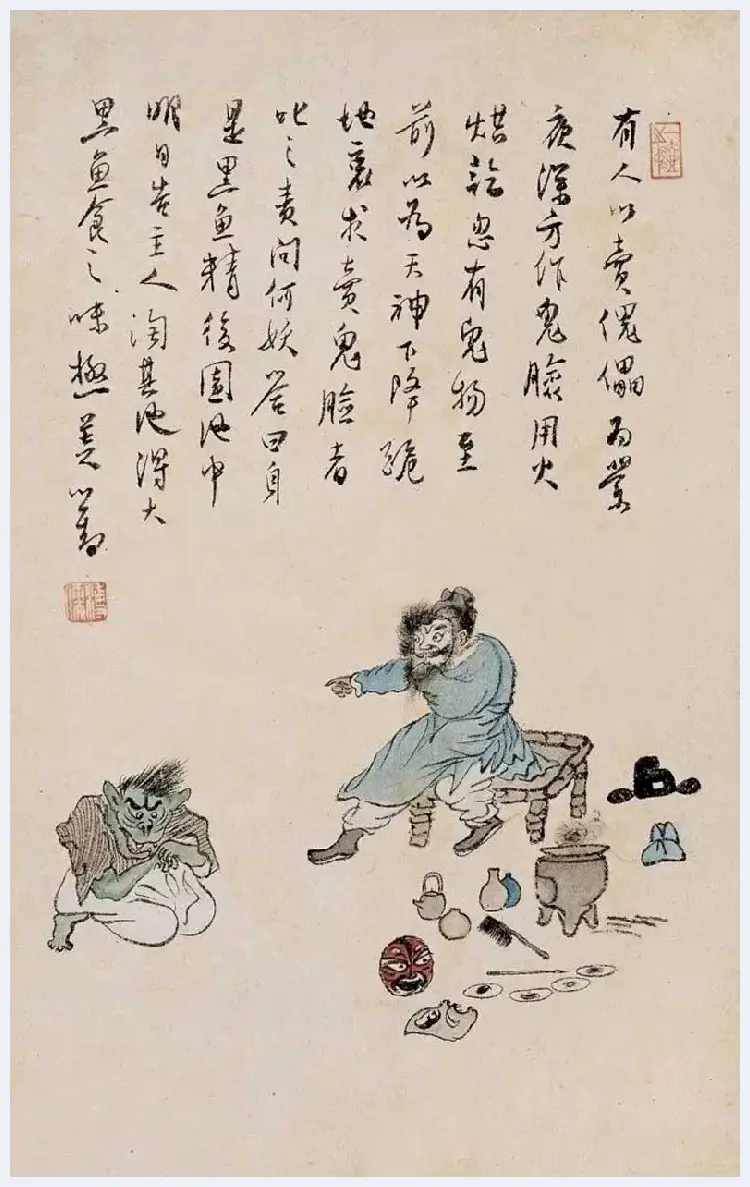 有人以賣傀儡為業
夜深方作鬼臉用火
烘乾忽有鬼物至
前以為天神下降跪
地哀求賣鬼臉者
叱之責問何妖答曰身
是黑魚精後園池中
明日告主人淘其池得大
黑魚食之味極美心畬